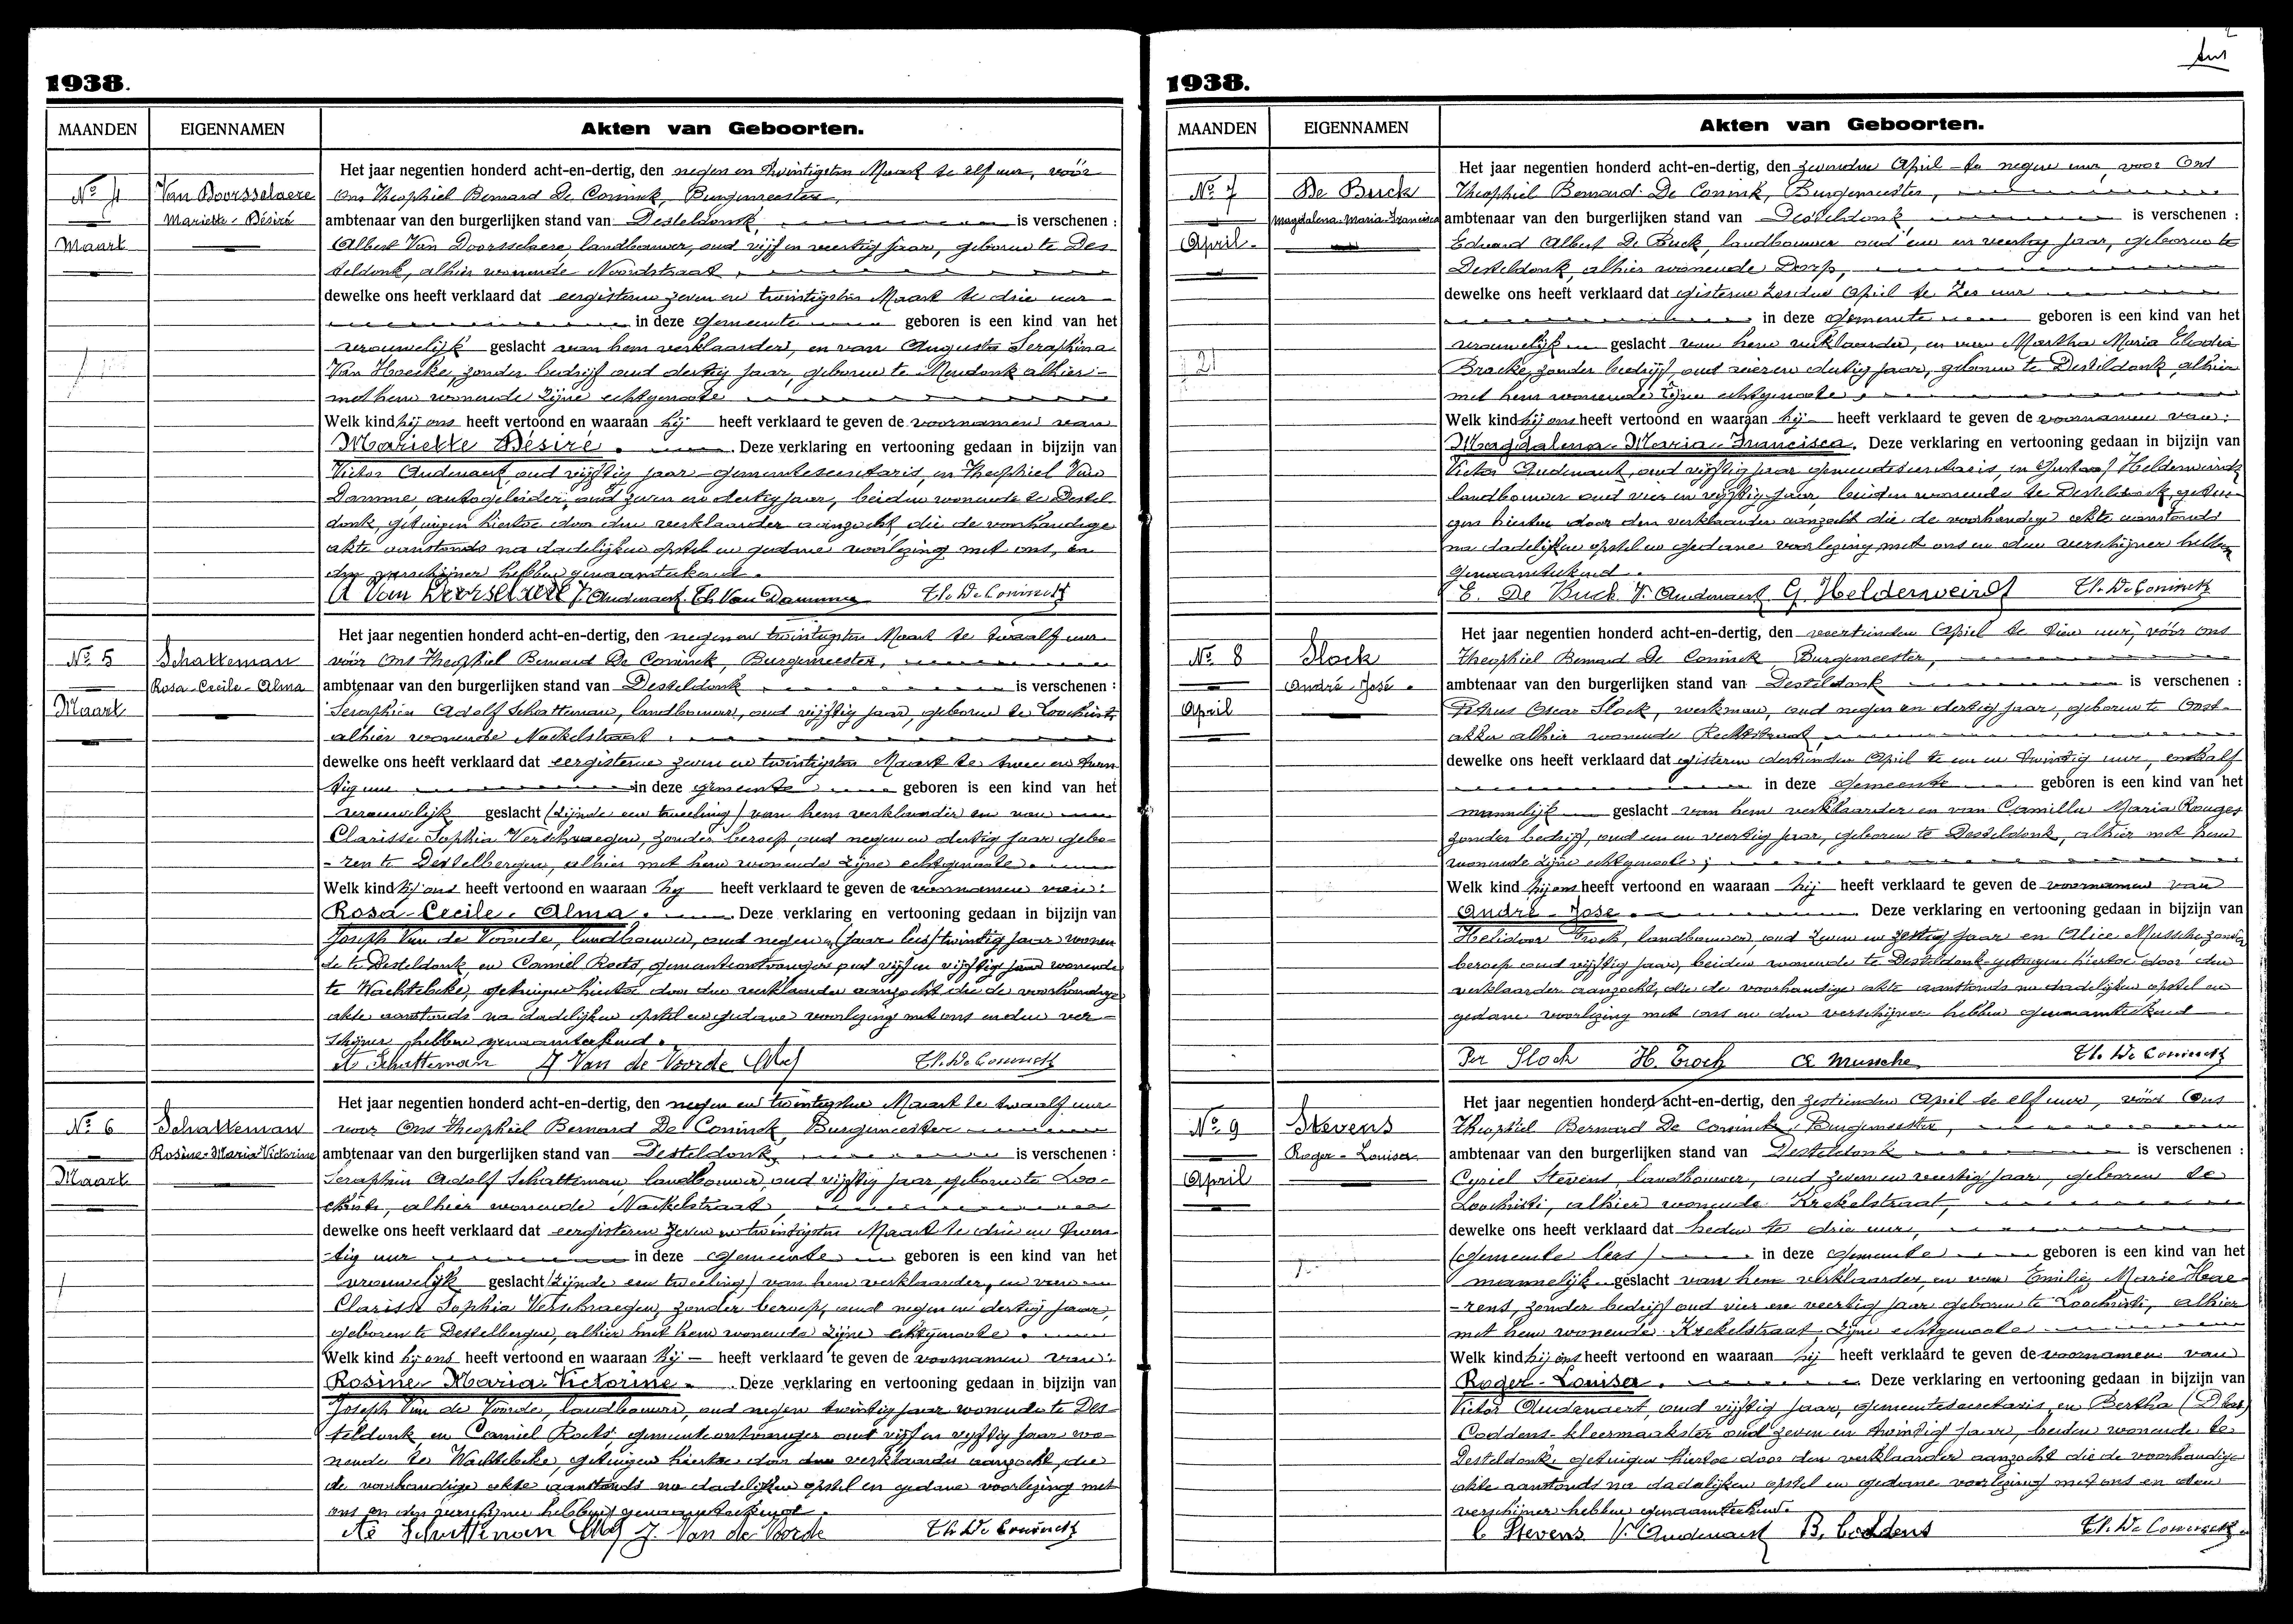 1938.
MAANDEN EIGENNAMEN Akten van Geboorten.
Het jaar negentien honderd acht-en-dertig, den negen en twintigsten Maart te elf uur, vóór
No 4 Van Doorsselaere Ons Theophiel Bernard De Coninck, Burgemeester,
Mariette-Désiré ambtenaar van den burgerlijken stand van Desteldonk, is verschenen :
Maart Albert Van Doorsselaere, landbouwer, oud vijf en veertig jaar, geboren te Des-
teldonk, alhier wonende Noordstraat,
dewelke ons heeft verklaard dat eergisteren zeven en twintigsten Maart te drie uur
in deze gemeente geboren is een kind van het
vrouwelijk geslacht van hem verklaarder, en van Augusta Seraphina
Van Hoecke, zonder bedrijf oud dertig jaar, geboren te Mendonk alhier
met hem wonende zijne echtgenoote
Welk kind hij ons heeft vertoond en waaraan hij heeft verklaard te geven de voornamen van
Mariette Désiré. Deze verklaring en vertooning gedaan in bijzijn van
Victor Audenaert, oud vijftig jaar gemeentesecretaris, en Theophiel Van
Damme, autogeleider, oud zeven en dertig jaar, beiden wonende te Destel
donk, getuigen hiertoe door den verklaarder aanzocht, die de voorhandige
akte aanstonds na dadelijken opstel en gedane voorlezing met ons, en
den verschijner hebben genaamteekend.
A Van Doorselaere V. Audenaert Th Van Damme Th. De Coninck
Het jaar negentien honderd acht-en-dertig, den negen en twintigsten Maart te twaalf uur
No 5 Schatteman vóór Ons Theophiel Bernard De Coninck, Burgemeester,
Rosa-Cecile-Alma ambtenaar van den burgerlijken stand van Desteldonk is verschenen :
Maart Seraphien Adolf Schatteman, landbouwer, oud vijftig jaar, geboren te Loochristi,
alhier wonende Nackelstraat
dewelke ons heeft verklaard dat eergisteren zeven en twintigsten Maart te twee en twin
tig uur in deze gemeente geboren is een kind van het
vrouwelijk geslacht (zijnde een tweeling) van hem verklaarder en van
Clarisse Sophia Verschraegen, zonder beroep, oud negen en dertig jaar gebo-
-ren te Destelbergen, alhier met hem wonende zijne echtgenoote.
Welk kind hij ons heeft vertoond en waaraan hij heeft verklaard te geven de voornamen van:
Rosa-Cecile-Alma. Deze verklaring en vertooning gedaan in bijzijn van
Joseph Van de Voorde, landbouwer, oud negen en (jaar lees) twintig jaar wonen
de te Desteldonk, en Camiel Roets, gemeenteontvanger oud vijf en vijftig jaar wonende
te Wachtebeke, getuigen hiertoe door den verklaarder aanzocht die de voorhandige
akte aanstonds na dadelijken opstel en gedane voorlezing met ons en den ver-
schijner hebben genaamteekend.
A Schatteman J Van de Voorde Th. De Coninck
Het jaar negentien honderd acht-en-dertig, den negen en twintigsten Maart te twaalf uur
No 6 Schatteman voor Ons Theophiel Bernard De Coninck, Burgemeester
Rosine-Maria-Victorine ambtenaar van den burgerlijken stand van Desteldonk, is verschenen :
Maart Seraphin Adolf Schatteman, landbouwer, oud vijftig jaar, geboren te Loo-
christi, alhier wonende Nackelstraat,
dewelke ons heeft verklaard dat eergisteren zeven en twintigsten Maart te drie en twin
tig uur in deze gemeente geboren is een kind van het
vrouwelijk geslacht (zijnde een tweeling) van hem verklaarder, en van
Clarisse Sophia Verschraegen, zonder beroep, oud negen en dertig jaar,
geboren te Destelbergen, alhier met hem wonende zijne echtgenoote.
Welk kind hij ons heeft vertoond en waaraan hij heeft verklaard te geven de voornamen van:
Rosine-Maria-Victorine. Deze verklaring en vertooning gedaan in bijzijn van
Joseph Van de Voorde, landbouwer, oud negen twintig jaar wonende te Des-
teldonk en Camiel Roets, gemeente ontvanger oud vijf en vijftig jaar wo-
nende te Wachtebeke, getuigen hiertoe door den verklaarder aanzocht, die
de voorhandige akte aanstonds na dadelijken opstel en gedane voorlezing met
ons en den verschijner hebben genaamteekend.
Schatteman J. Van de Voorde Th De Coninck
1938.
MAANDEN EIGENNAMEN Akten van Geboorten.
Het jaar negentien honderd acht-en-dertig, den zevenden April te negen uur, voor Ons
No 7 De Buck Theophiel Bernard De Coninck, Burgemeester,
Magdalena-Maria-Francisca ambtenaar van den burgerlijken stand van Desteldonk is verschenen :
April Eduard Albert De Buck, landbouwer oud een en veertig jaar, geboren te
Desteldonk, alhier wonende Dorp,
dewelke ons heeft verklaard dat gisteren zesden April te zes uur
in deze gemeente geboren is een kind van het
vrouwelijk geslacht van hem verklaarder, en van Martha Maria Elodia
Bracke, zonder bedrijf, oud vier en dertig jaar, geboren te Desteldonk, alhier
met hem wonende zijne echtgenoote.
Welk kind hij ons heeft vertoond en waaraan hij heeft verklaard te geven de voornamen van:
Magdalena-Maria-Francisca. Deze verklaring en vertooning gedaan in bijzijn van
Victor Audenaert, oud vijftig jaar gemeentesecretaris, en Gustaaf Helderweirdt
landbouwer oud vier en vijftig jaar, beiden wonende te Desteldonk, getui-
gen hiertoe door den verklaarder aanzocht die de voorhandige akte aanstonds
na dadelijken opstel en gedane voorlezing met ons en den verschijner hebben
genaamteekend.
E. De Buck V. Audenaert G. Helderweirdt Th. De Coninck
Het jaar negentien honderd acht-en-dertig, den veertienden April te tien uur, vóór ons
No 8 Slock Theophiel Bernard De Coninck Burgemeester,
André-José. ambtenaar van den burgerlijken stand van Desteldonk is verschenen :
April Petrus Oscar Slock, werkman, oud negen en dertig jaar, geboren te Oost-
akker alhier wonende Rechtstraat,
dewelke ons heeft verklaard dat gisteren dertienden April te een en twintig uur, en half
in deze gemeente geboren is een kind van het
mannelijk geslacht van hem verklaarder en van Camilla Maria Rouges
zonder bedrijf, oud een en veertig jaar, geboren te Desteldonk, alhier met hem
wonende zijne echtgenoote;
Welk kind hij ons heeft vertoond en waaraan hij heeft verklaard te geven de voornamen van
André-José. Deze verklaring en vertooning gedaan in bijzijn van
Helidoor Troch, landbouwer, oud zeven en zestig jaar en Alice Mussche zonder
beroep oud vijftig jaar, beiden wonende te Desteldonk getuigen hiertoe door den
verklaarder aanzocht, die de voorhandige akte aanstonds na dadelijken opstel en
gedane voorlezing met ons en den verschijner hebben genaamteekend
Per Slock H. Troch A Mussche Th. De Coninck
Het jaar negentien honderd acht-en-dertig, den zestienden April te elf uur, vóór Ons
No 9 Stevens Theophiel Bernard De Coninck, Burgemeester,
Roger-Louisa ambtenaar van den burgerlijken stand van Desteldonk is verschenen :
April Cyriel Stevens, landbouwer, oud zeven en veertig jaar, geboren te
Loochristi, alhier wonende Krekelstraat,
dewelke ons heeft verklaard dat heden te drie uur,
(gemeente lees) in deze gemeente geboren is een kind van het
mannelijk geslacht van hem verklaarder, en van Emilie Marie Hae-
-rens, zonder bedrijf oud vier en veertig jaar geboren te Loochristi, alhier
met hem wonende Krekelstraat, zijne echtgenoote
Welk kind hij ons heeft vertoond en waaraan hij heeft verklaard te geven de voornamen van
Roger-Louisa. Deze verklaring en vertooning gedaan in bijzijn van
Victor Audenaert, oud vijftig jaar, gemeentesecretaris, en Bertha
Coddens-kleermaakster oud zeven en twintig jaar, beiden wonende te
Desteldonk getuigen hiertoe door den verklaarder aanzocht die de voorhandige
akte aanstonds na dadelijken opstel en gedane voorlezing met ons en den
verschijner hebben genaamteekend.
C Stevens V. Audenaert B. Coddens Th. De Coninck